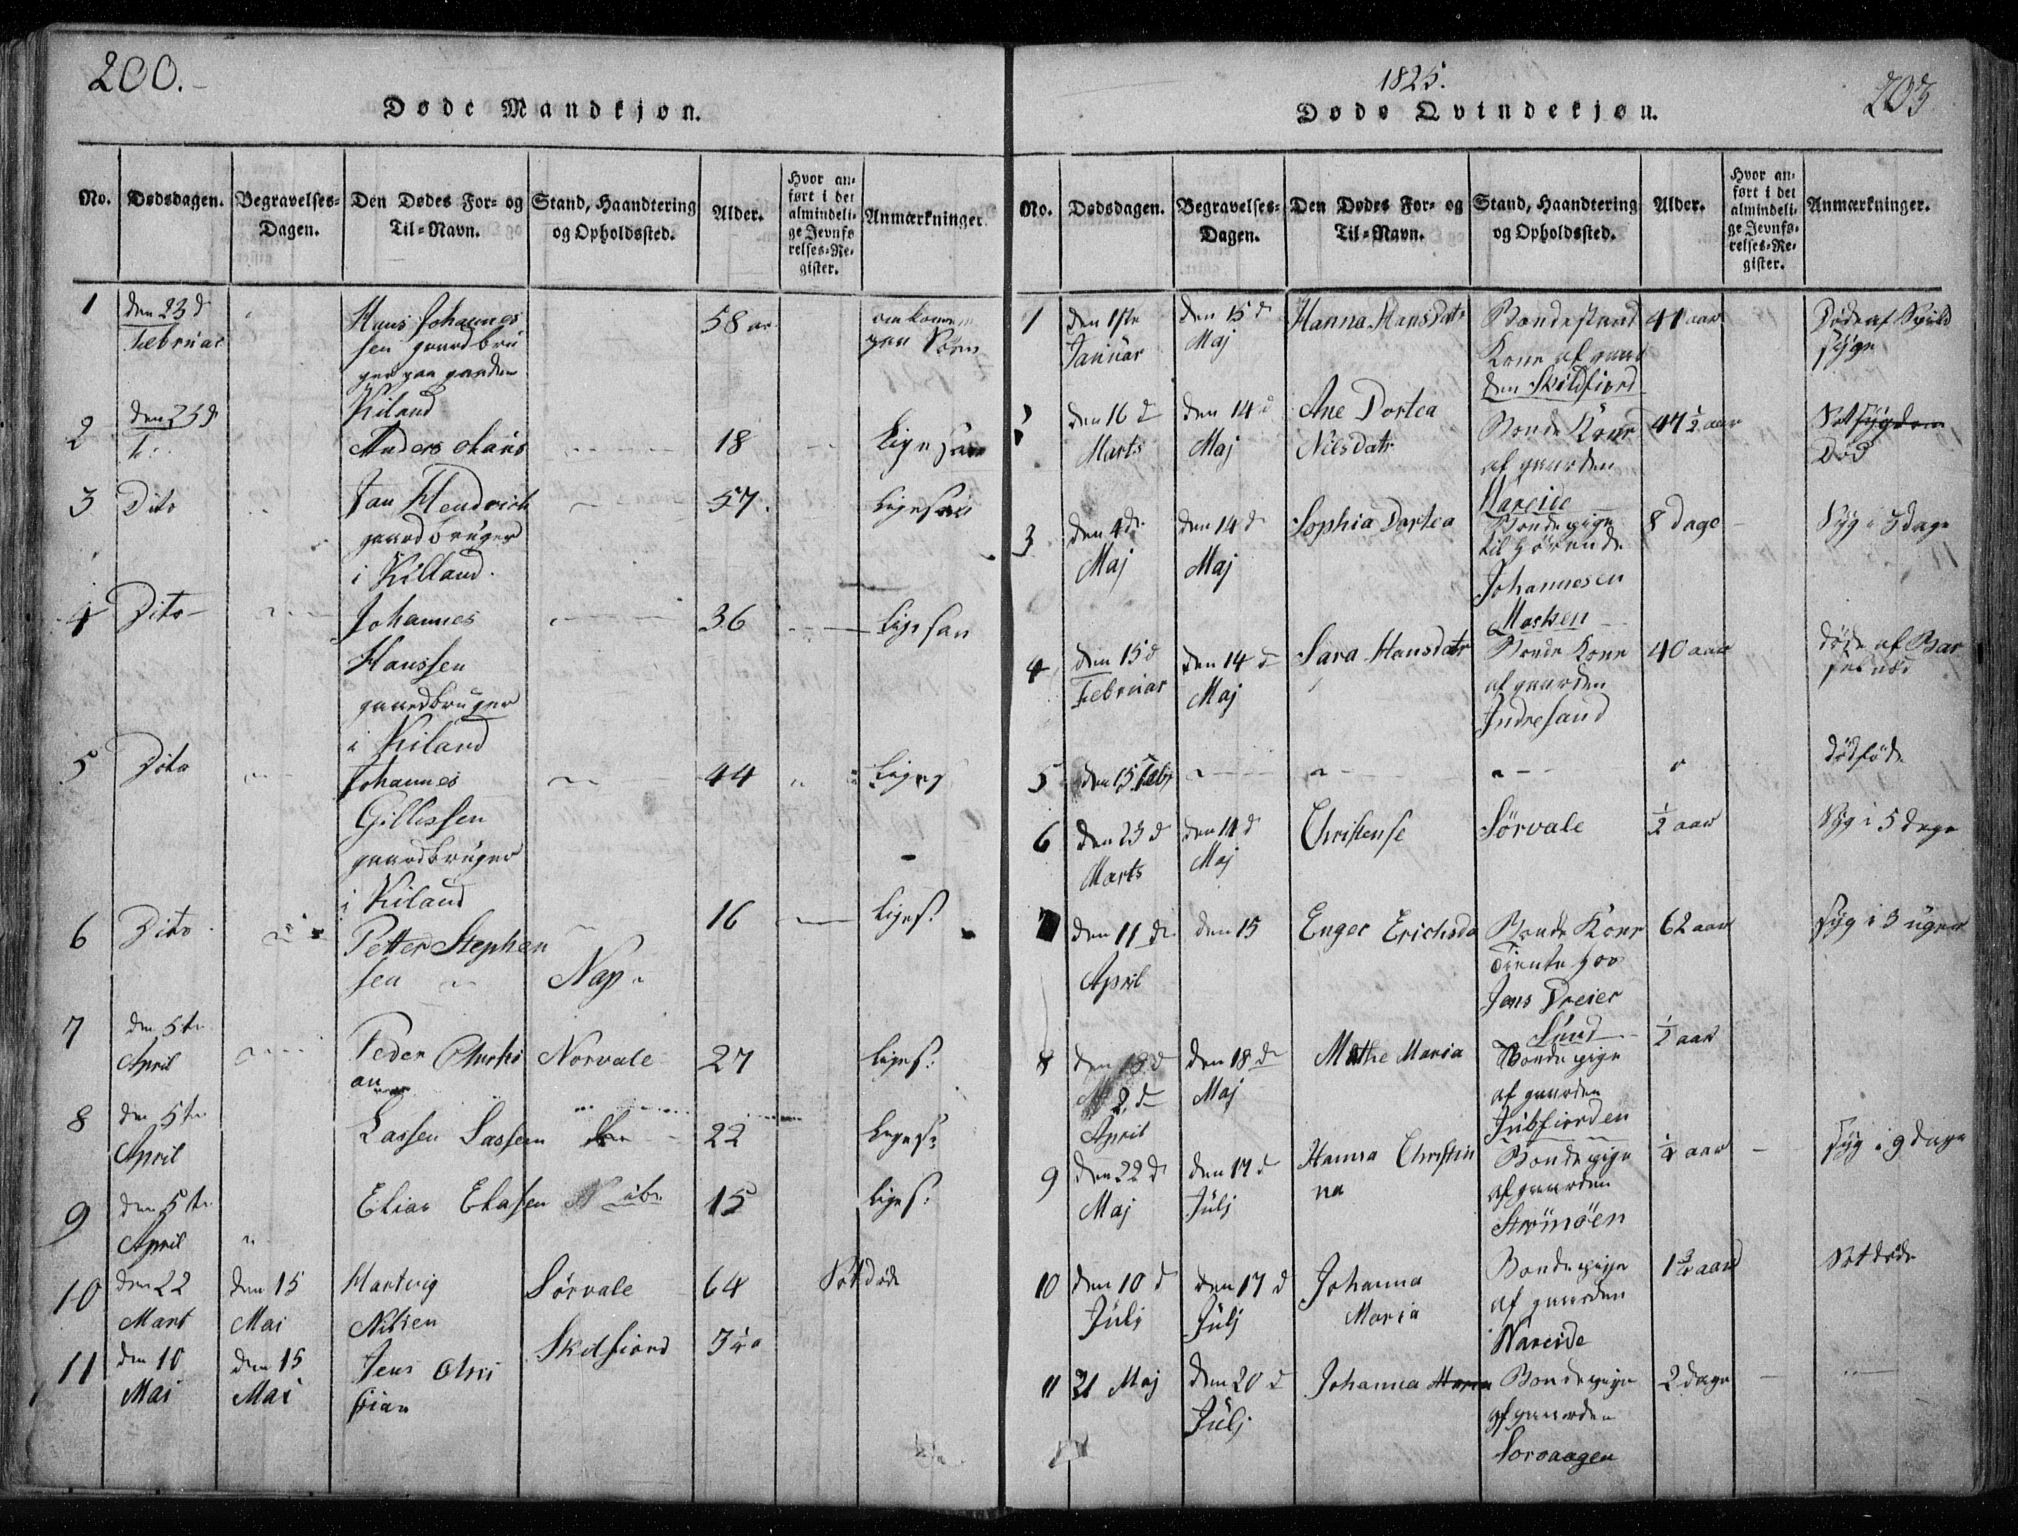 200.
Døde Mandkjøn.
No. Dødsdagen. Begravelses-Dagen. Den Dødes For- og Til-Navn. Stand, Haandtering og Opholdssted. Alder. Hvor anført i det almindelige Jevnførelses-Register. Anmærkninger
1 den 23 d Februar Hans Johannes
sen gaardbru
ger paa gaarden
Kiland 58 aar omkommen
paa Søen
2 den 23 d F. Anders Hans 18 Ligesaa
3 Dito Jan Hendrich
gaardbruger
i Killand. 57. Ligesaa
4 Dito Johannes
Hanssen
gaardbruger
i Kiland 36 Ligesaa
5 Dito Johannes
Gillissen
gaardbruger
i Kiland 44 Liges
6 Dito Petter Stephen
sen Nap 16 Liges:
7 den 5te
April Peder Christi
an Norvale 27 Liges:
8 den 5te
April Lassen Lassen 22 Liges:
9 den 5te
April Elias Elasen 15 Liges:
10 den 22
Mart den 15
Mai Hartvig
Nilsen Sørvale 64 Sotdøde
11 den 10
Mai den 15
Mai Jens Chri
stian Skelfiord
1825.
203
Døde Qvindekjøn.
No. Dødsdagen. Begravelses-Dagen. Den Dødes For- og Til-Navn. Stand, Haandtering og Opholdssted. Alder. Hvor anført i det almindelige Jevnførelses-Register. Anmærkninger.
1 den 1ste
Januar den 15 d
Maj Hanna Hansdatr Bondestand
Kone af gaar
den Skildfiord 41 aar Døde af
syge
2 den 16 d
Marts den 14 d
Maj Ane Dortea
Nilsdatr Bonde Kone
af gaarden
Nareide 47 1/2 aar Sotsygdom
Død
3 den 4 d
Maj den 14 d
Maj Sophia Dortea Bondepige
tilhörende
Johannesen
Marken 8 dage Syg i 3 dage
4 den 15 d
Februar den 14 d
Maj Sara Hansdatr Bonde Kone
af gaarden
Indresand 40 aar døde af Bar
selnød
5 den 15 Febr dødföd
6 den 23 d
Marts den 14 d
Maj Christense Sörvale 1/2 aar Syg i 5 dage
7 den 11 d
April den 15 Enger Erichsda Bonde Kone
Tiente hos
Jens Dreier
Sund 62 aar syg i 3 uger
8 den 18 d
2 d
April den 18 d
Maj Mathe Maria Bondepige
af gaarden
Julsfiorden 1/2 aar
9 den 22 d
Maj den 17 d
Julj Hanna Christin
na Bondepige
af gaarden
Strömöen 1/2 aar syg i 9 dage
10 den 10 d
Julj den 17 d
Julj Johanna
Maria Bondepige
af gaarden
Nareide 1 3/4 aar Sotdöde
11 21 Maj den 20 d
Julj Johanna Bondepige
af gaarden
Sorvaagen 2 dage